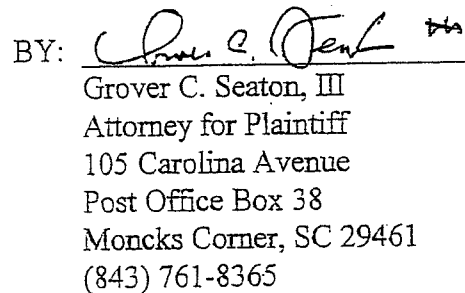 BY:
Grover C. Seaton, III
Attorney for Plaintiff
105 Carolina Avenue
Post Office Box 38
Moncks Corner, SC 29461
(843) 761-8365